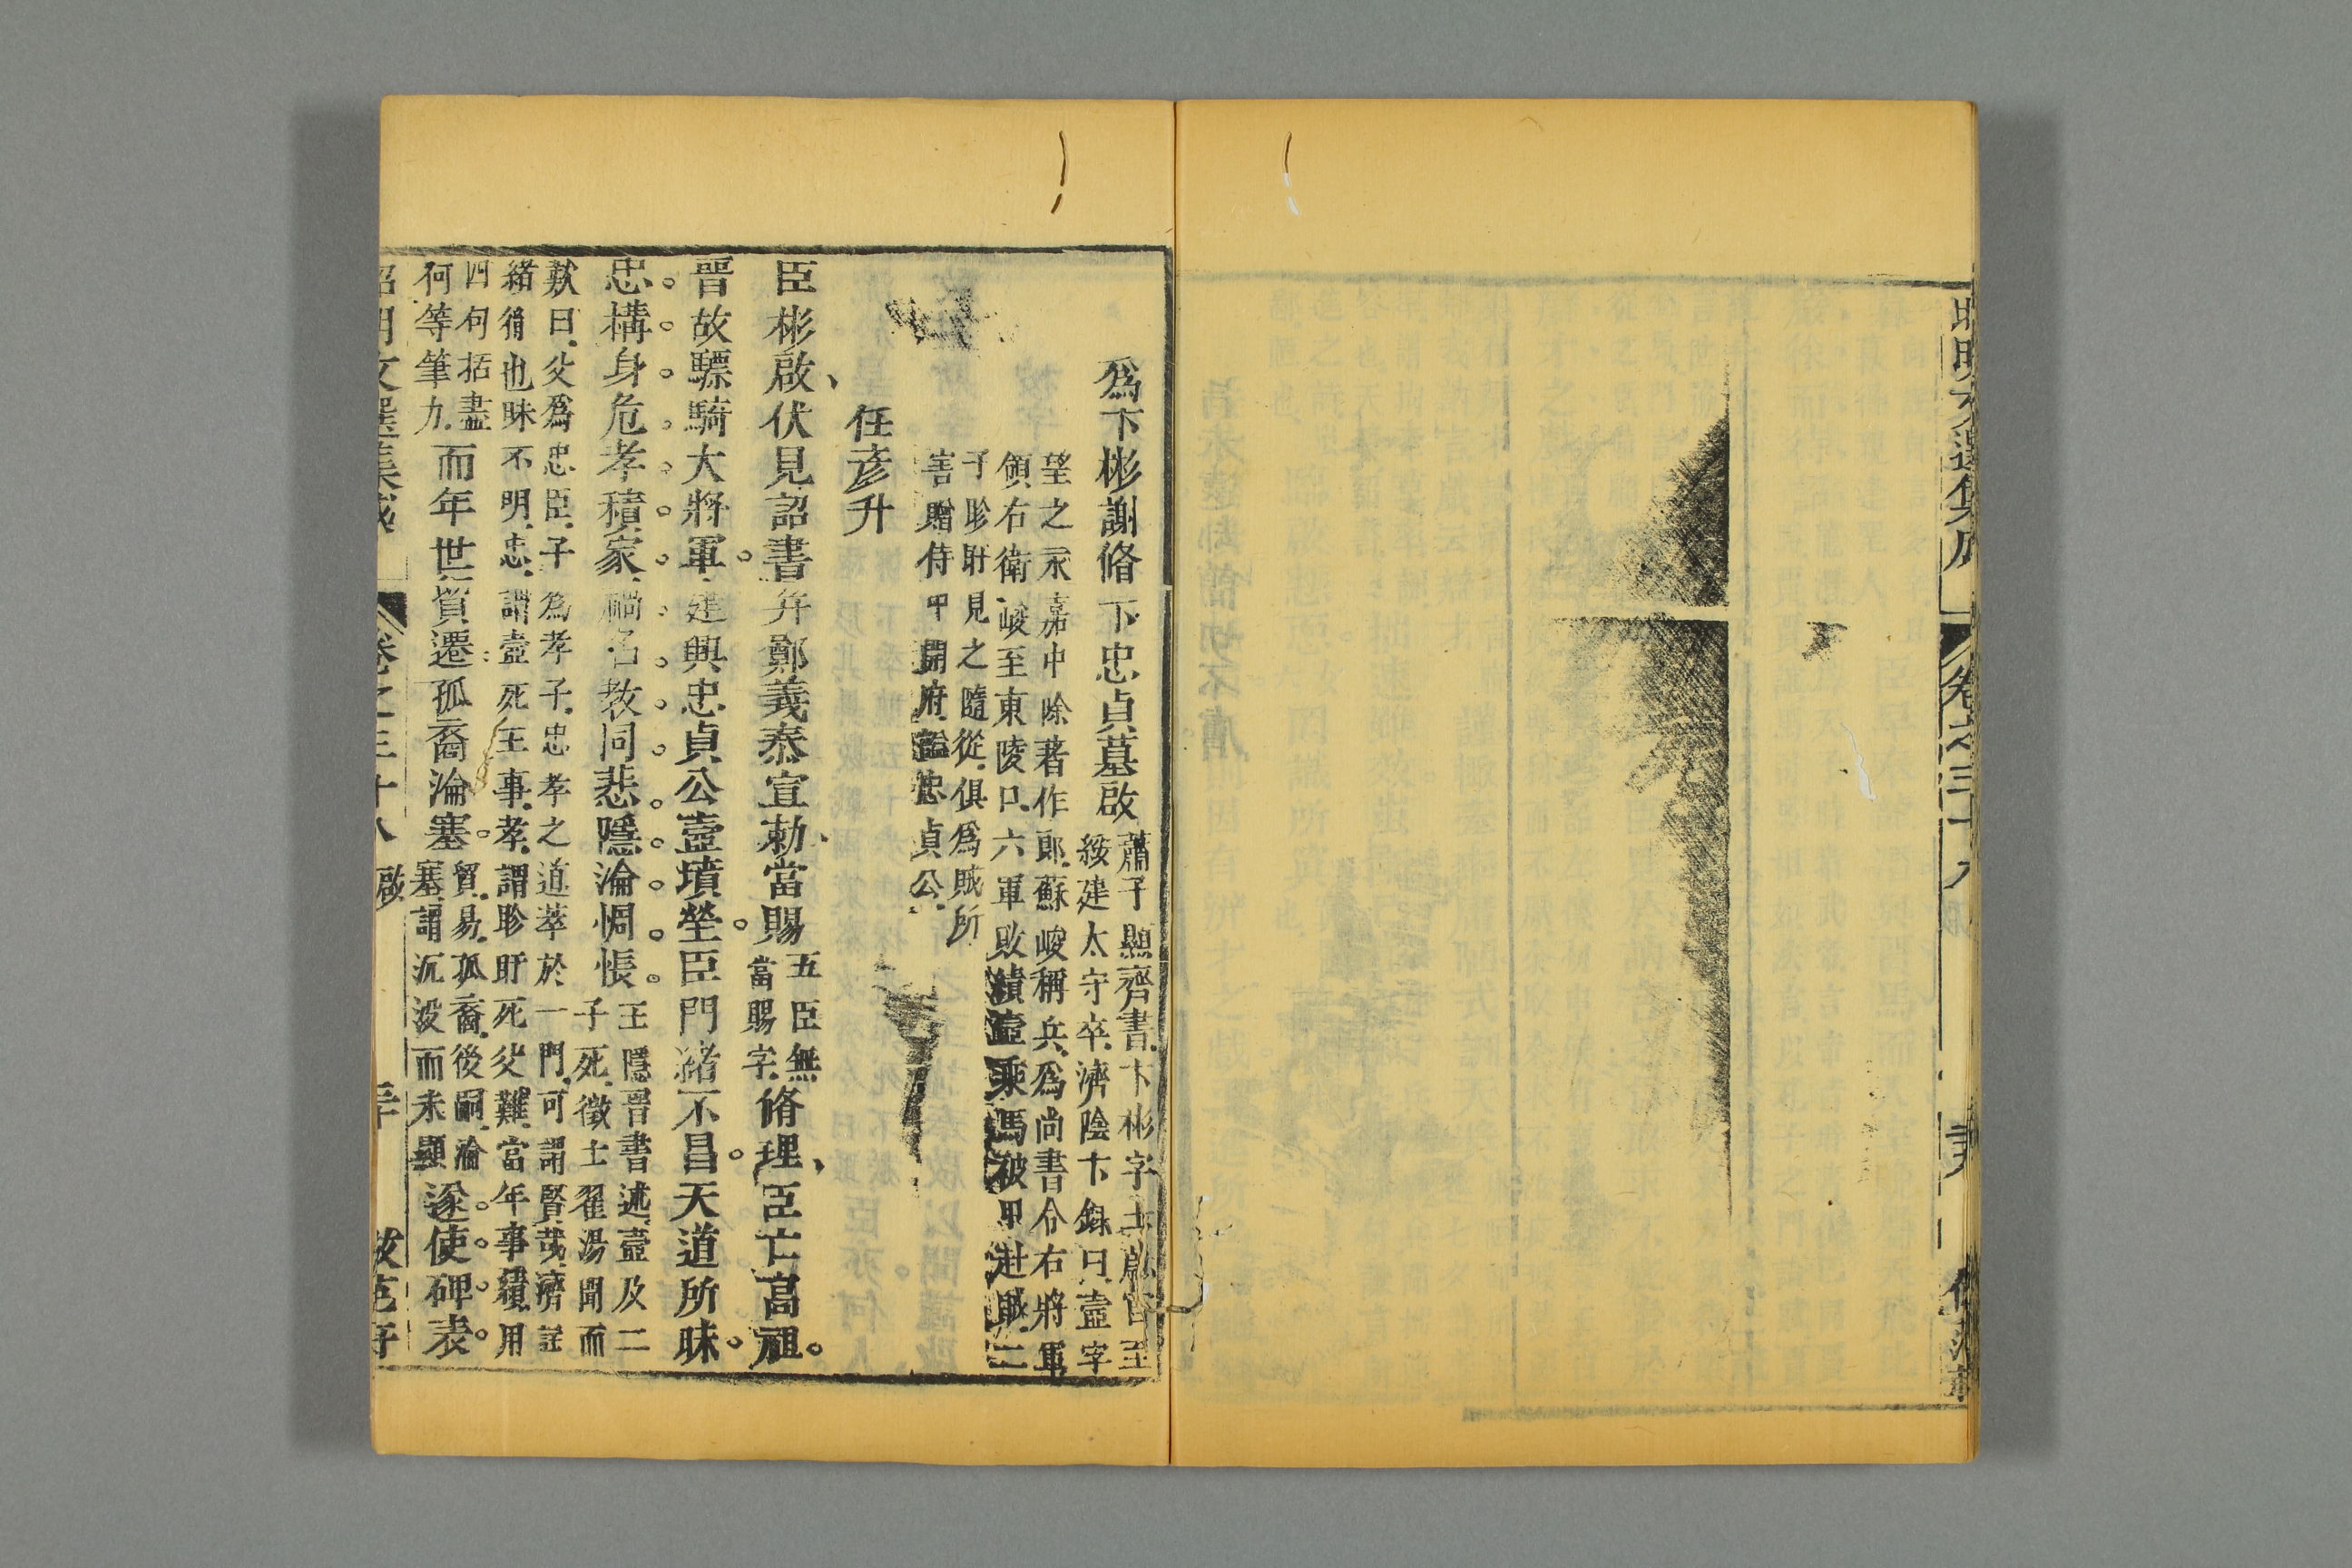 爲卞彬謝脩卞忠貞墓啟 蕭子顯齊書卞彬字士蔚官至
綏建太守卒濟陰卞錄曰壼字
望之永嘉中除著作郎蘇峻稱兵爲尚書令右將軍
領右衛峻至東陵口六軍敗績壼乘馬被甲赴賊二
子眕盱見之隨從俱爲賊所
害贈侍中開府謚忠貞公
任彥升
臣彬啟伏見詔書并鄭義泰宣勅當賜 五臣無
當賜字 脩理臣亡高祖
晉故驃騎大將軍建興忠貞公壼墳塋臣門緒不昌天道所昧
忠構身危孝積家禍名教同悲隱淪惆悵 王隱晉書述壼及二
子死徵士翟湯聞而
歎曰父爲忠臣子爲孝子忠孝之道萃於一門可謂賢哉濟註
緒胤也昧不明忠謂壼死王事孝謂眕盱死父難當年事績用
四句括盡
何等筆力 而年世貿遷孤裔淪塞 貿易孤裔後嗣淪
塞謂沉没而未顯 遂使碑表
昭明文選集成 卷之三十八 啟
昭明文選集成 卷之三十八